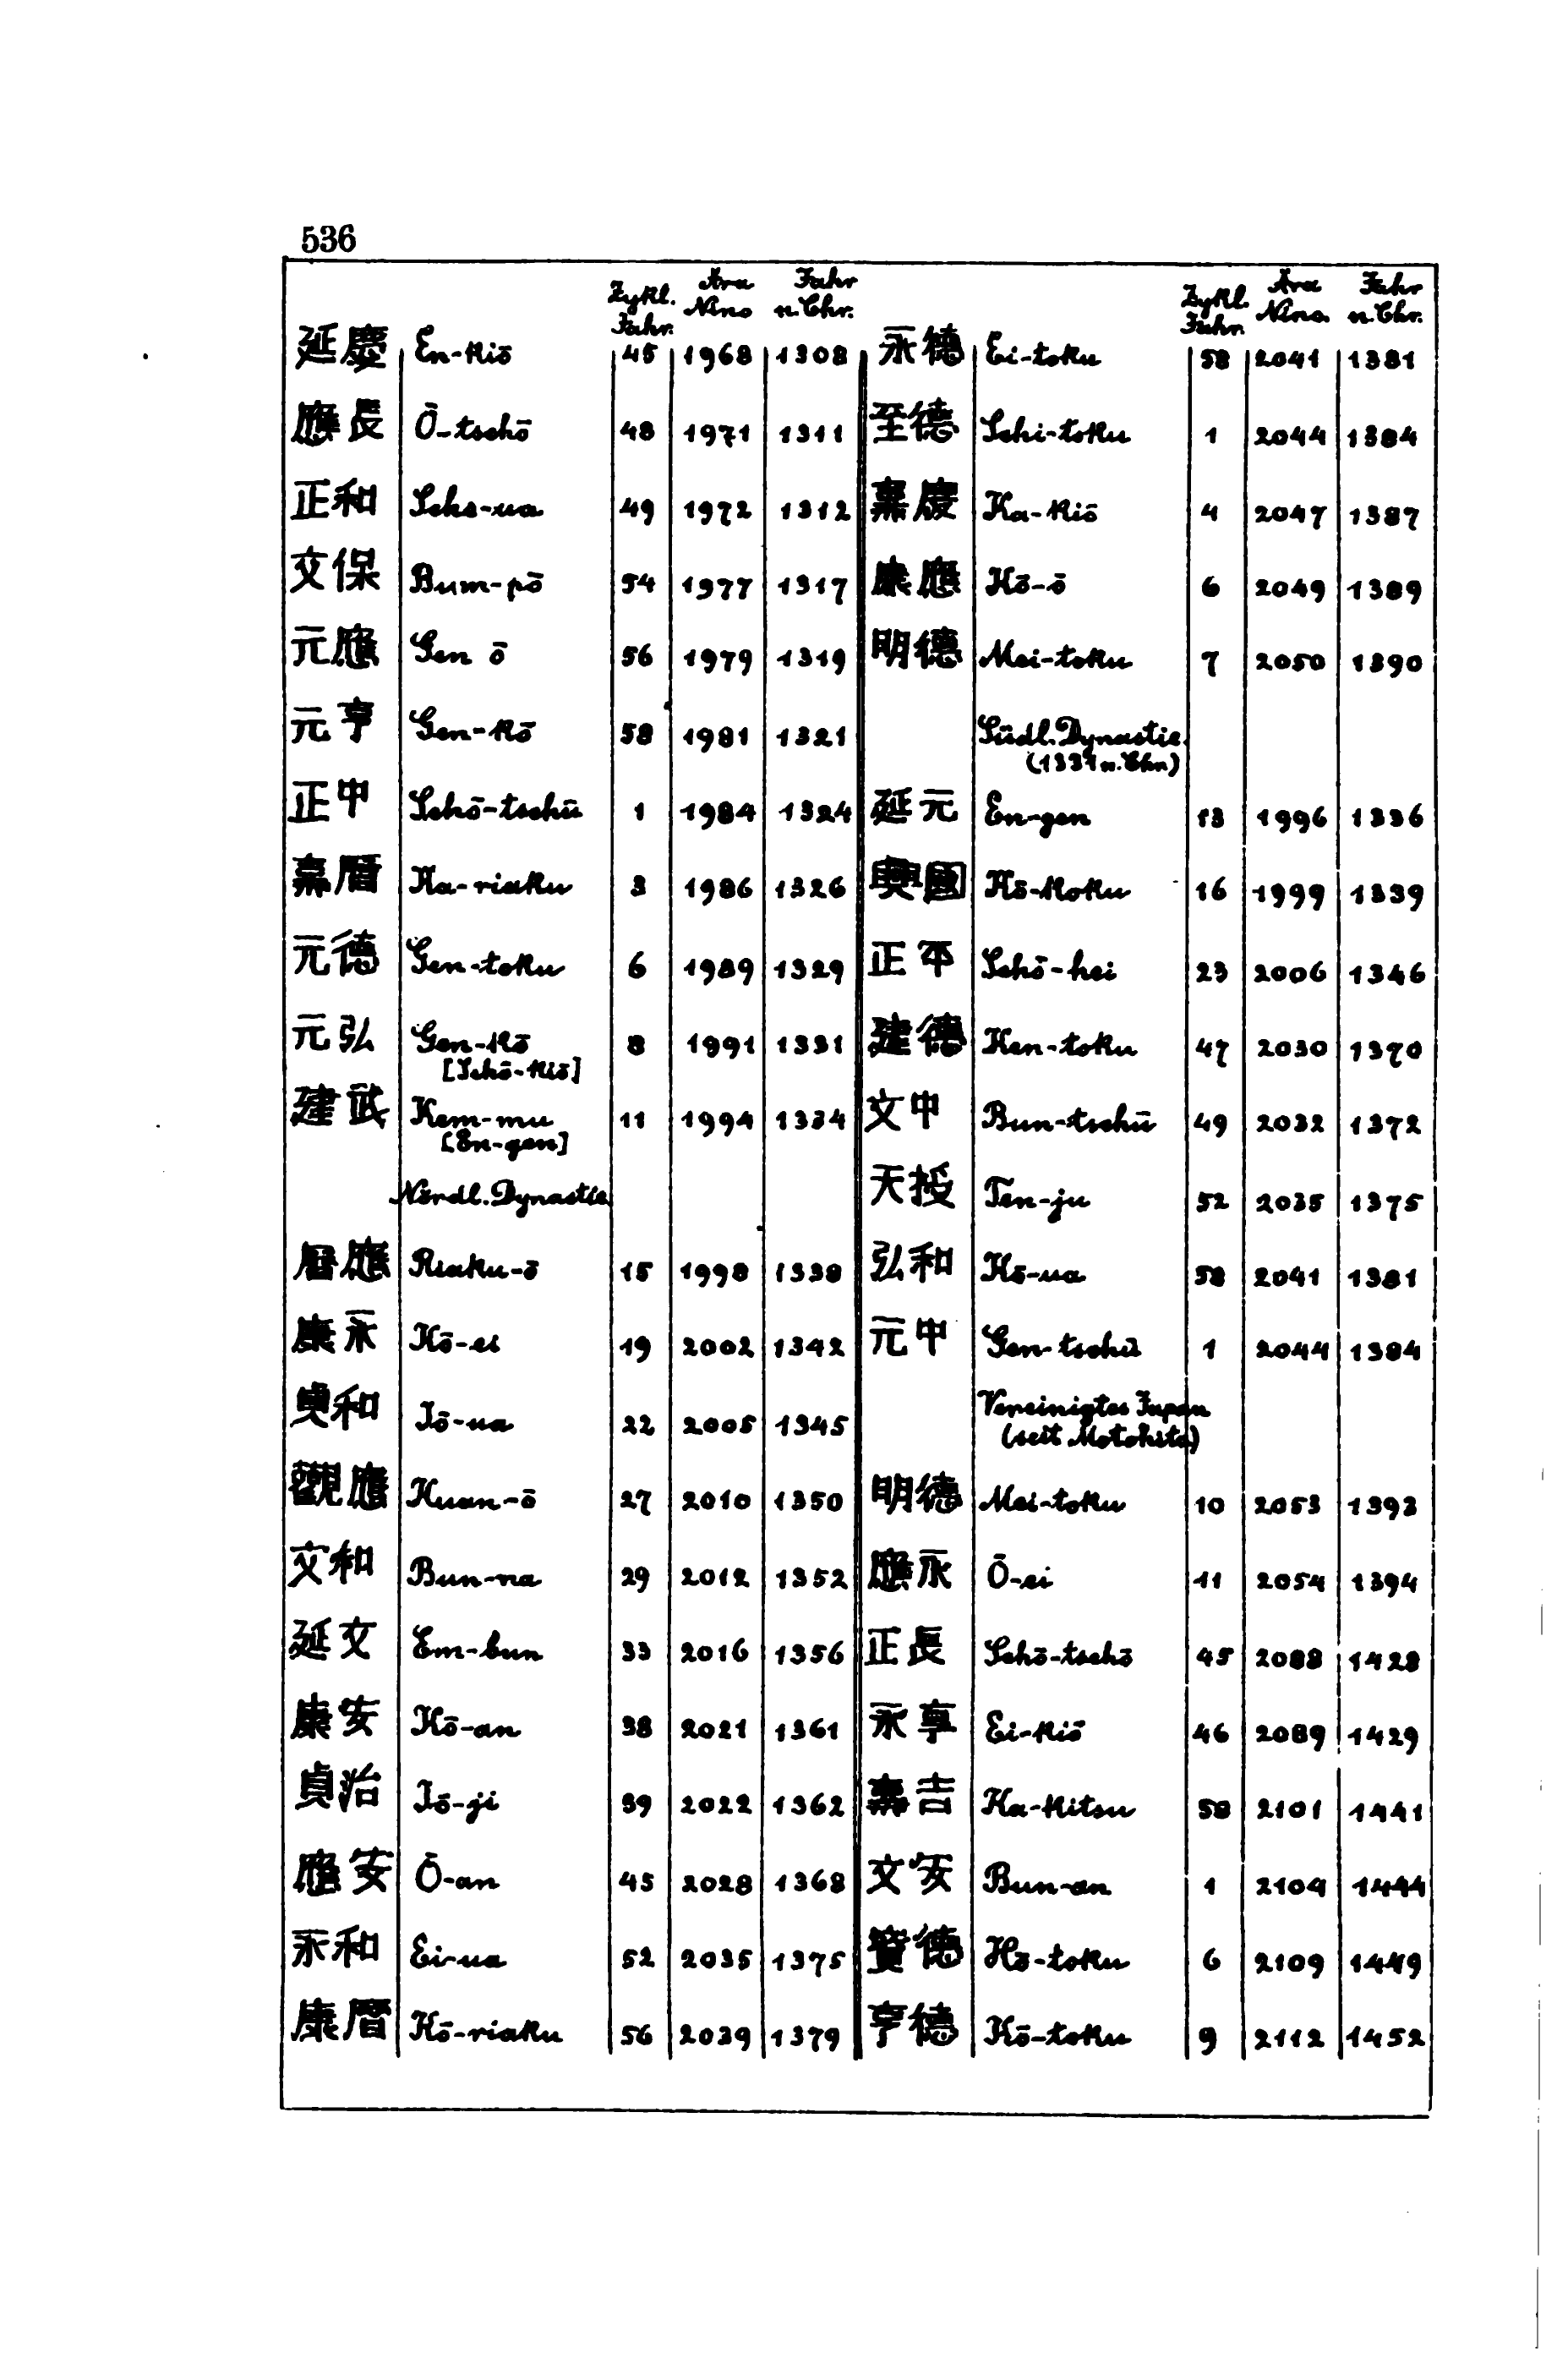 536
Zykl. Jahr. Ära Nino Jahr n. Chr.
延慶 En-kiō 45 1968 1308
應長 Ō-tschō 48 1971 1311
正和 Scho-ua 49 1972 1312
文保 Bum-pō 54 1977 1317
元應 Gen ō 56 1979 1319
元亨 Gen-kō 58 1981 1321
正中 Schō-tschū 1 1984 1324
嘉暦 Ka-riaku 3 1986 1326
元德 Gen-toku 6 1989 1329
元弘 Gen-kō 8 1991 1331
[Schō-kiō]
建武 Kem-mu 11 1994 1334
[En-gen]
Nördl. Dynastie
暦應 Riaku-ō 15 1998 1338
康永 Kō-ei 19 2002 1342
貞和 Jō-ua 22 2005 1345
觀應 Kuan-ō 27 2010 1350
文和 Bun-na 29 2012 1352
延文 Em-bun 33 2016 1356
康安 Kō-an 38 2021 1361
貞治 Jō-ji 39 2022 1362
應安 Ō-an 45 2028 1368
永和 Ei-ua 52 2035 1375
康暦 Kō-riaku 56 2039 1379
Zykl. Jahr. Ära Nino. Jahr n. Chr.
永德 Ei-toku 58 2041 1381
至德 Schi-toku 1 2044 1384
嘉慶 Ka-kiō 4 2047 1387
康應 Kō-ō 6 2049 1389
明德 Mei-toku 7 2050 1390
Südl. Dynastie.
(1331 n. Chr.)
延元 En-gen 13 1996 1336
興國 Kō-koku 16 1999 1339
正平 Schō-hei 23 2006 1346
建德 Ken-toku 47 2030 1370
文中 Bun-tschū 49 2032 1372
天授 Ten-ju 52 2035 1375
弘和 Kō-ua 58 2041 1381
元中 Gen-tschū 1 2044 1384
Vereinigtes Japan
(seit Motohito)
明德 Mei-toku 10 2053 1393
應永 Ō-ei 11 2054 1394
正長 Schō-tschō 45 2088 1428
永享 Ei-kiō 46 2089 1429
嘉吉 Ka-kitsu 58 2101 1441
文安 Bun-an 1 2104 1444
寶德 Hō-toku 6 2109 1449
亨德 Kō-toku 9 2112 1452